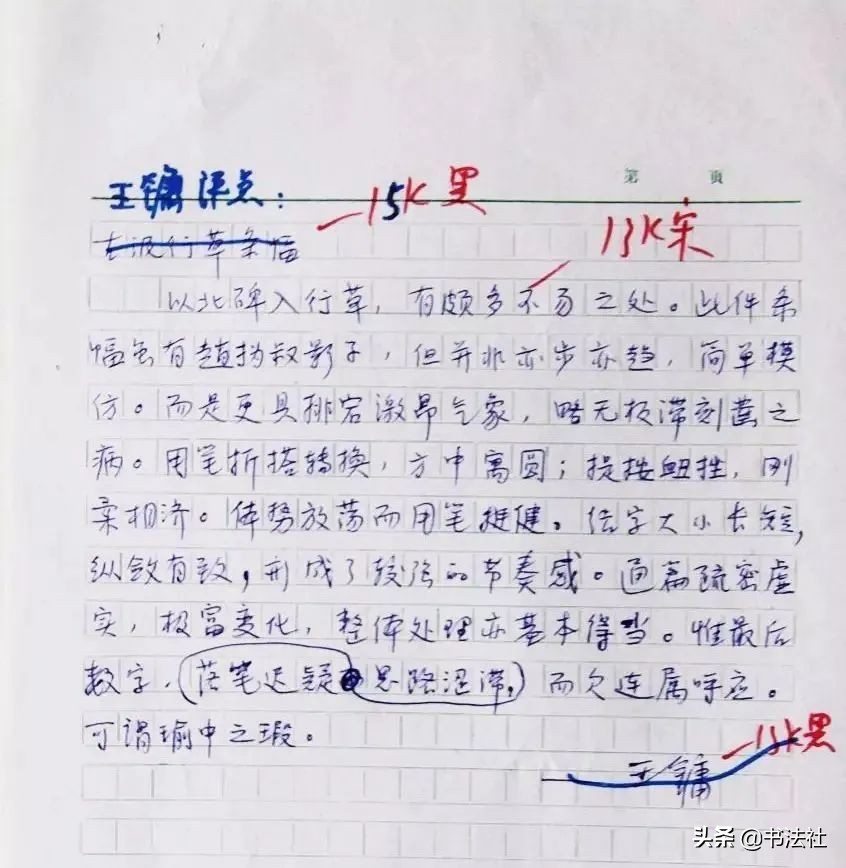 第 頁
王镛评点：
15K黑
古汲行草条幅
13K宋
以北碑入行草，有颇多不易之处。此件条
幅虽有赵㧑叔影子，但并非亦步亦趋，简单模
仿。而是更具排宕激昂气象，略无板滞刻凿之
病。用笔折搭转换，方中寓圆；提按钮挫，刚
柔相济。体势放荡而用笔挺健。结字大小长短，
纵敛有致，形成了较强的节奏感。通篇疏密虚
实，极富变化，整体处理亦基本得当。惟最后
数字，（落笔迟疑思路涩滞，）而欠连属呼应。
可谓瑜中之瑕。
13K黑
王镛
头条 @书法社